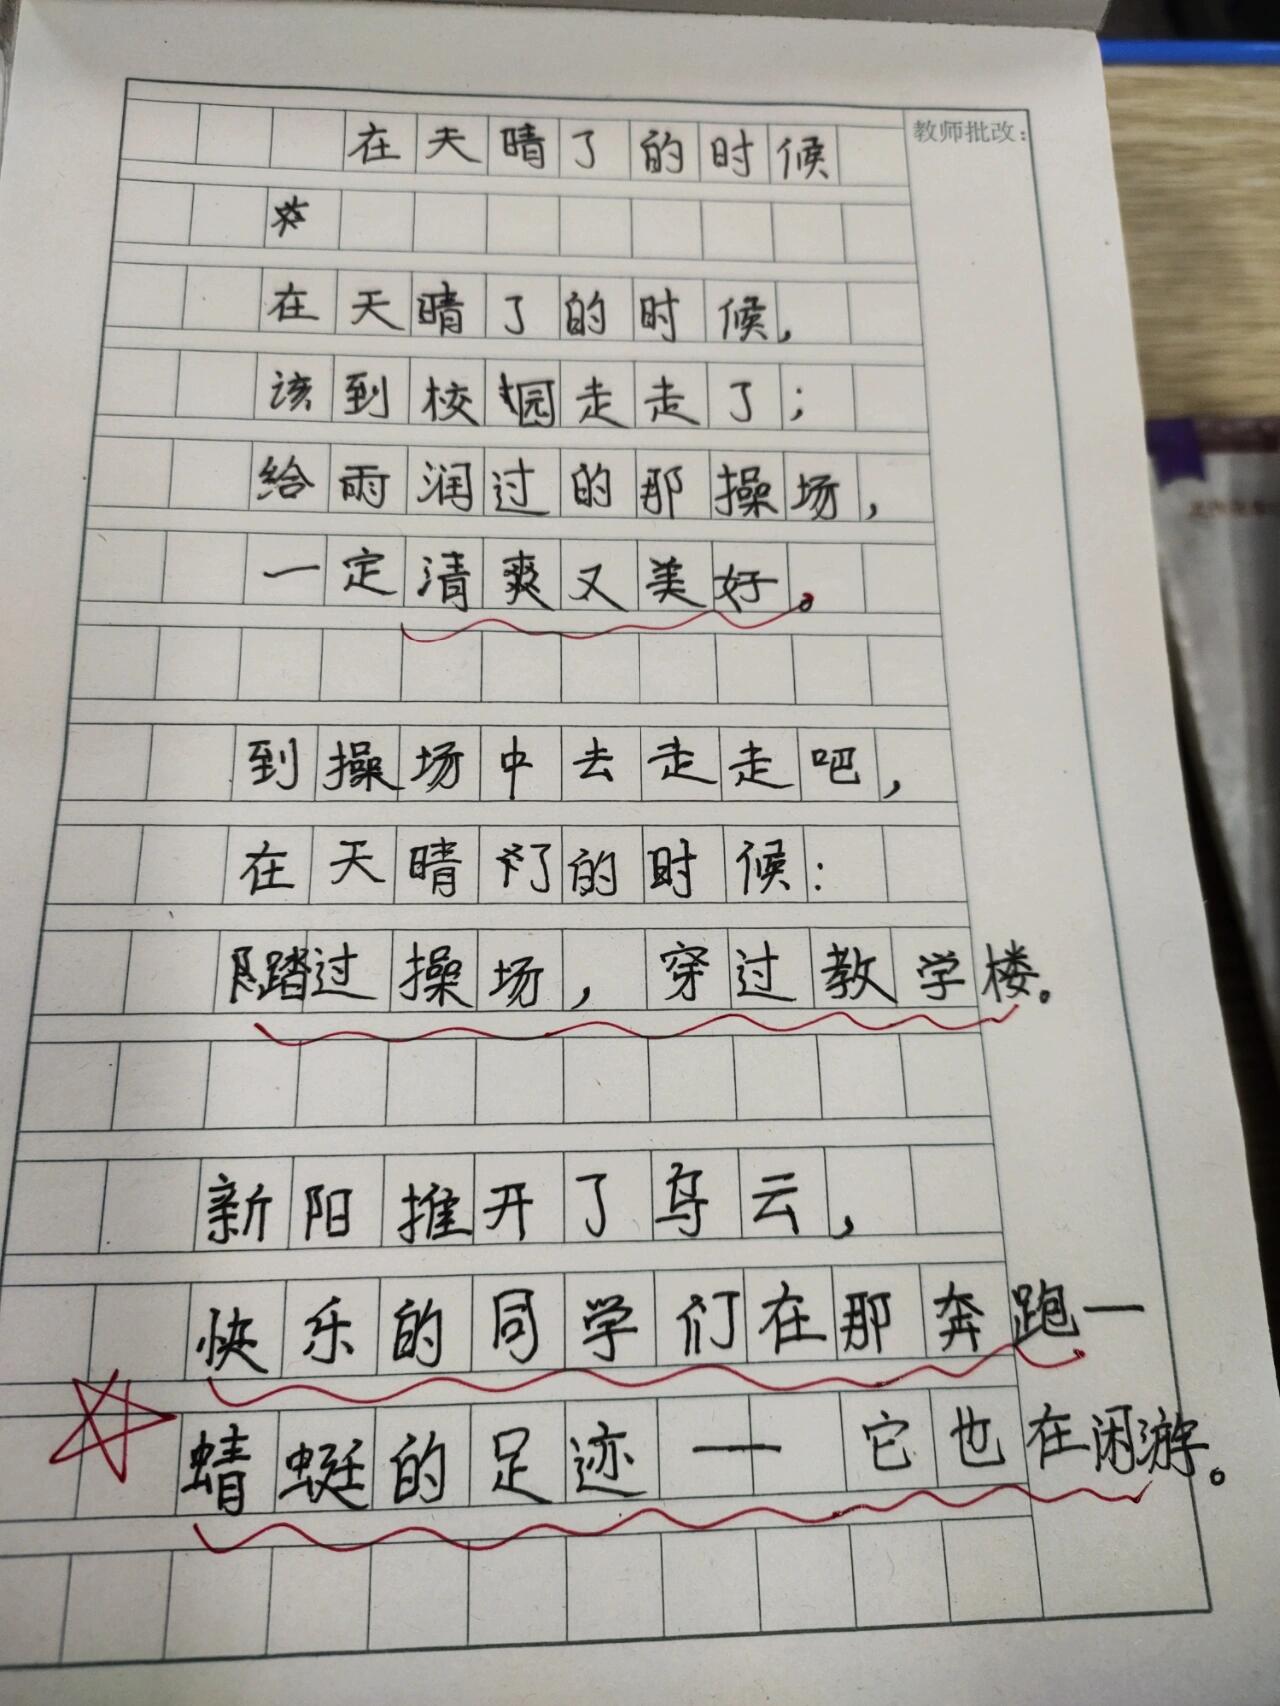 在天晴了的时候
教师批改：
在天晴了的时候，
该到校园走走了；
给雨润过的那操场，
一定清爽又美好。
到操场中去走走吧，
在天晴了的时候：
踏过操场，穿过教学楼。
新阳推开了乌云，
快乐的同学们在那奔跑—
蜻蜓的足迹——它也在闲游。